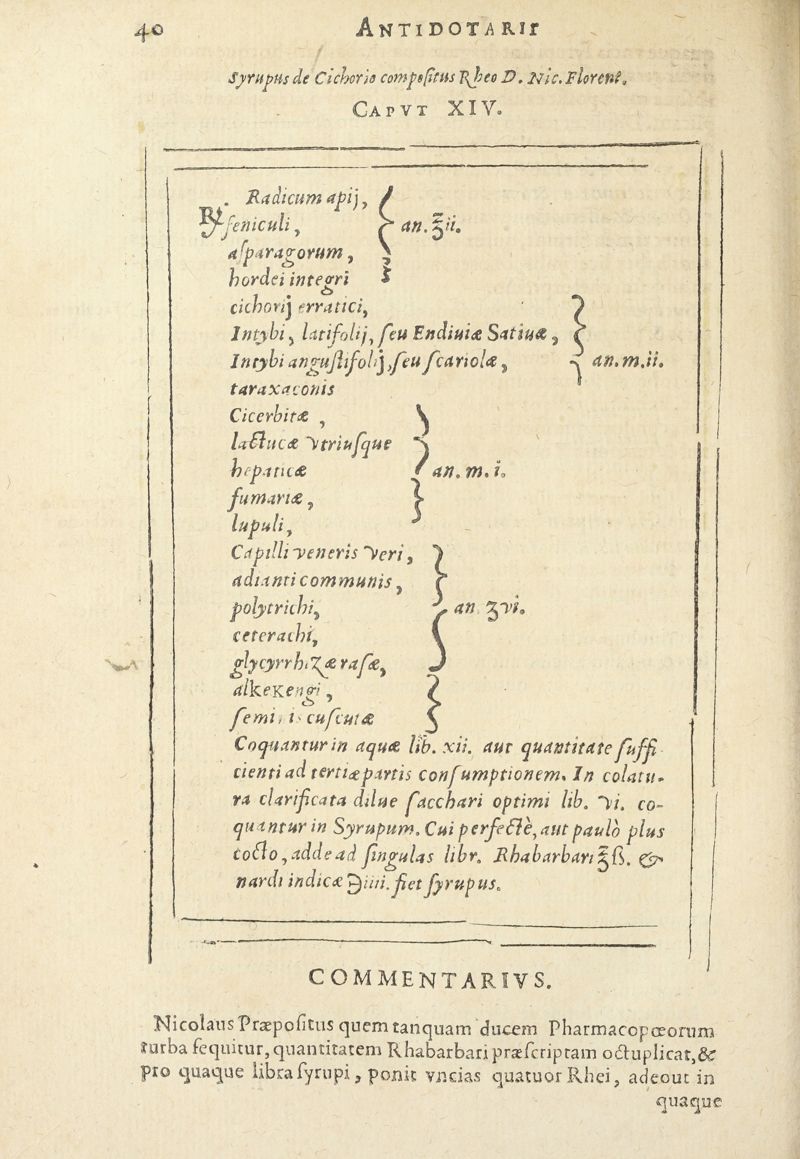 40 ANTIDOTARII
Syrupus de Cichorio compositus Rheo D. Nic. Florent.
CAPVT XIV.
℞. Radicum apij,
feniculi,
asparagorum, } an. ℥ii.
hordei integri
cichorij erratici,
Intybi, latifolij, seu Endiuiæ Satiuæ,
Intybi angustifolij, seu scariolæ, } an. m. ii.
taraxaconis
Cicerbitæ,
lactucæ vtriusque
hepaticæ } an. m. i.
fumariæ,
lupuli,
Capilli veneris veri,
adianti communis,
polytrichi, } an. ʒvi.
ceterachi,
glycyrrhizæ rasæ,
alkekengi,
semi, is cuscutæ
Coquantur in aquæ lib. xii. aut quantitate suffi-
cienti ad tertiæ partis consumptionem. In colatu-
ra clarificata dilue sacchari optimi lib. vi. co-
quantur in Syrupum. Cui perfectè, aut paulò plus
cocto, adde ad singulas libr. Rhabarbari ℥ß. &
nardi indicæ ℈iiii. fiet syrupus.
COMMENTARIVS.
Nicolaus Præpositus quem tanquam ducem Pharmacopœorum
turba sequitur, quantitatem Rhabarbari præscriptam octuplicat, &
pro quaque libra syrupi, ponit vncias quatuor Rhei, adeout in
quaque